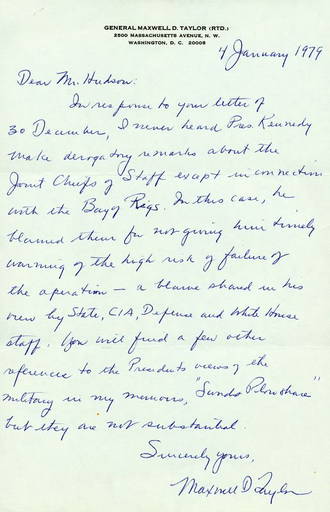 GENERAL MAXWELL D. TAYLOR (RTD.)
2500 MASSACHUSETTS AVENUE, N. W.
WASHINGTON, D. C. 20008
4 January 1979
Dear Mr. Hudson:
In response to your letter of
30 December, I never heard Pres. Kennedy
make derogatory remarks about the
Joint Chiefs of Staff except in connection
with the Bay of Pigs. In this case, he
blamed them for not giving him timely
warning of the high risk of failure of
the operation — a blame shared in his
view by State, CIA, Defense and White House
staff. You will find a few other
references to the President's views of the
military in my memoirs, "Swords & Plowshares"
but they are not substantial.
Sincerely yours,
Maxwell D Taylor